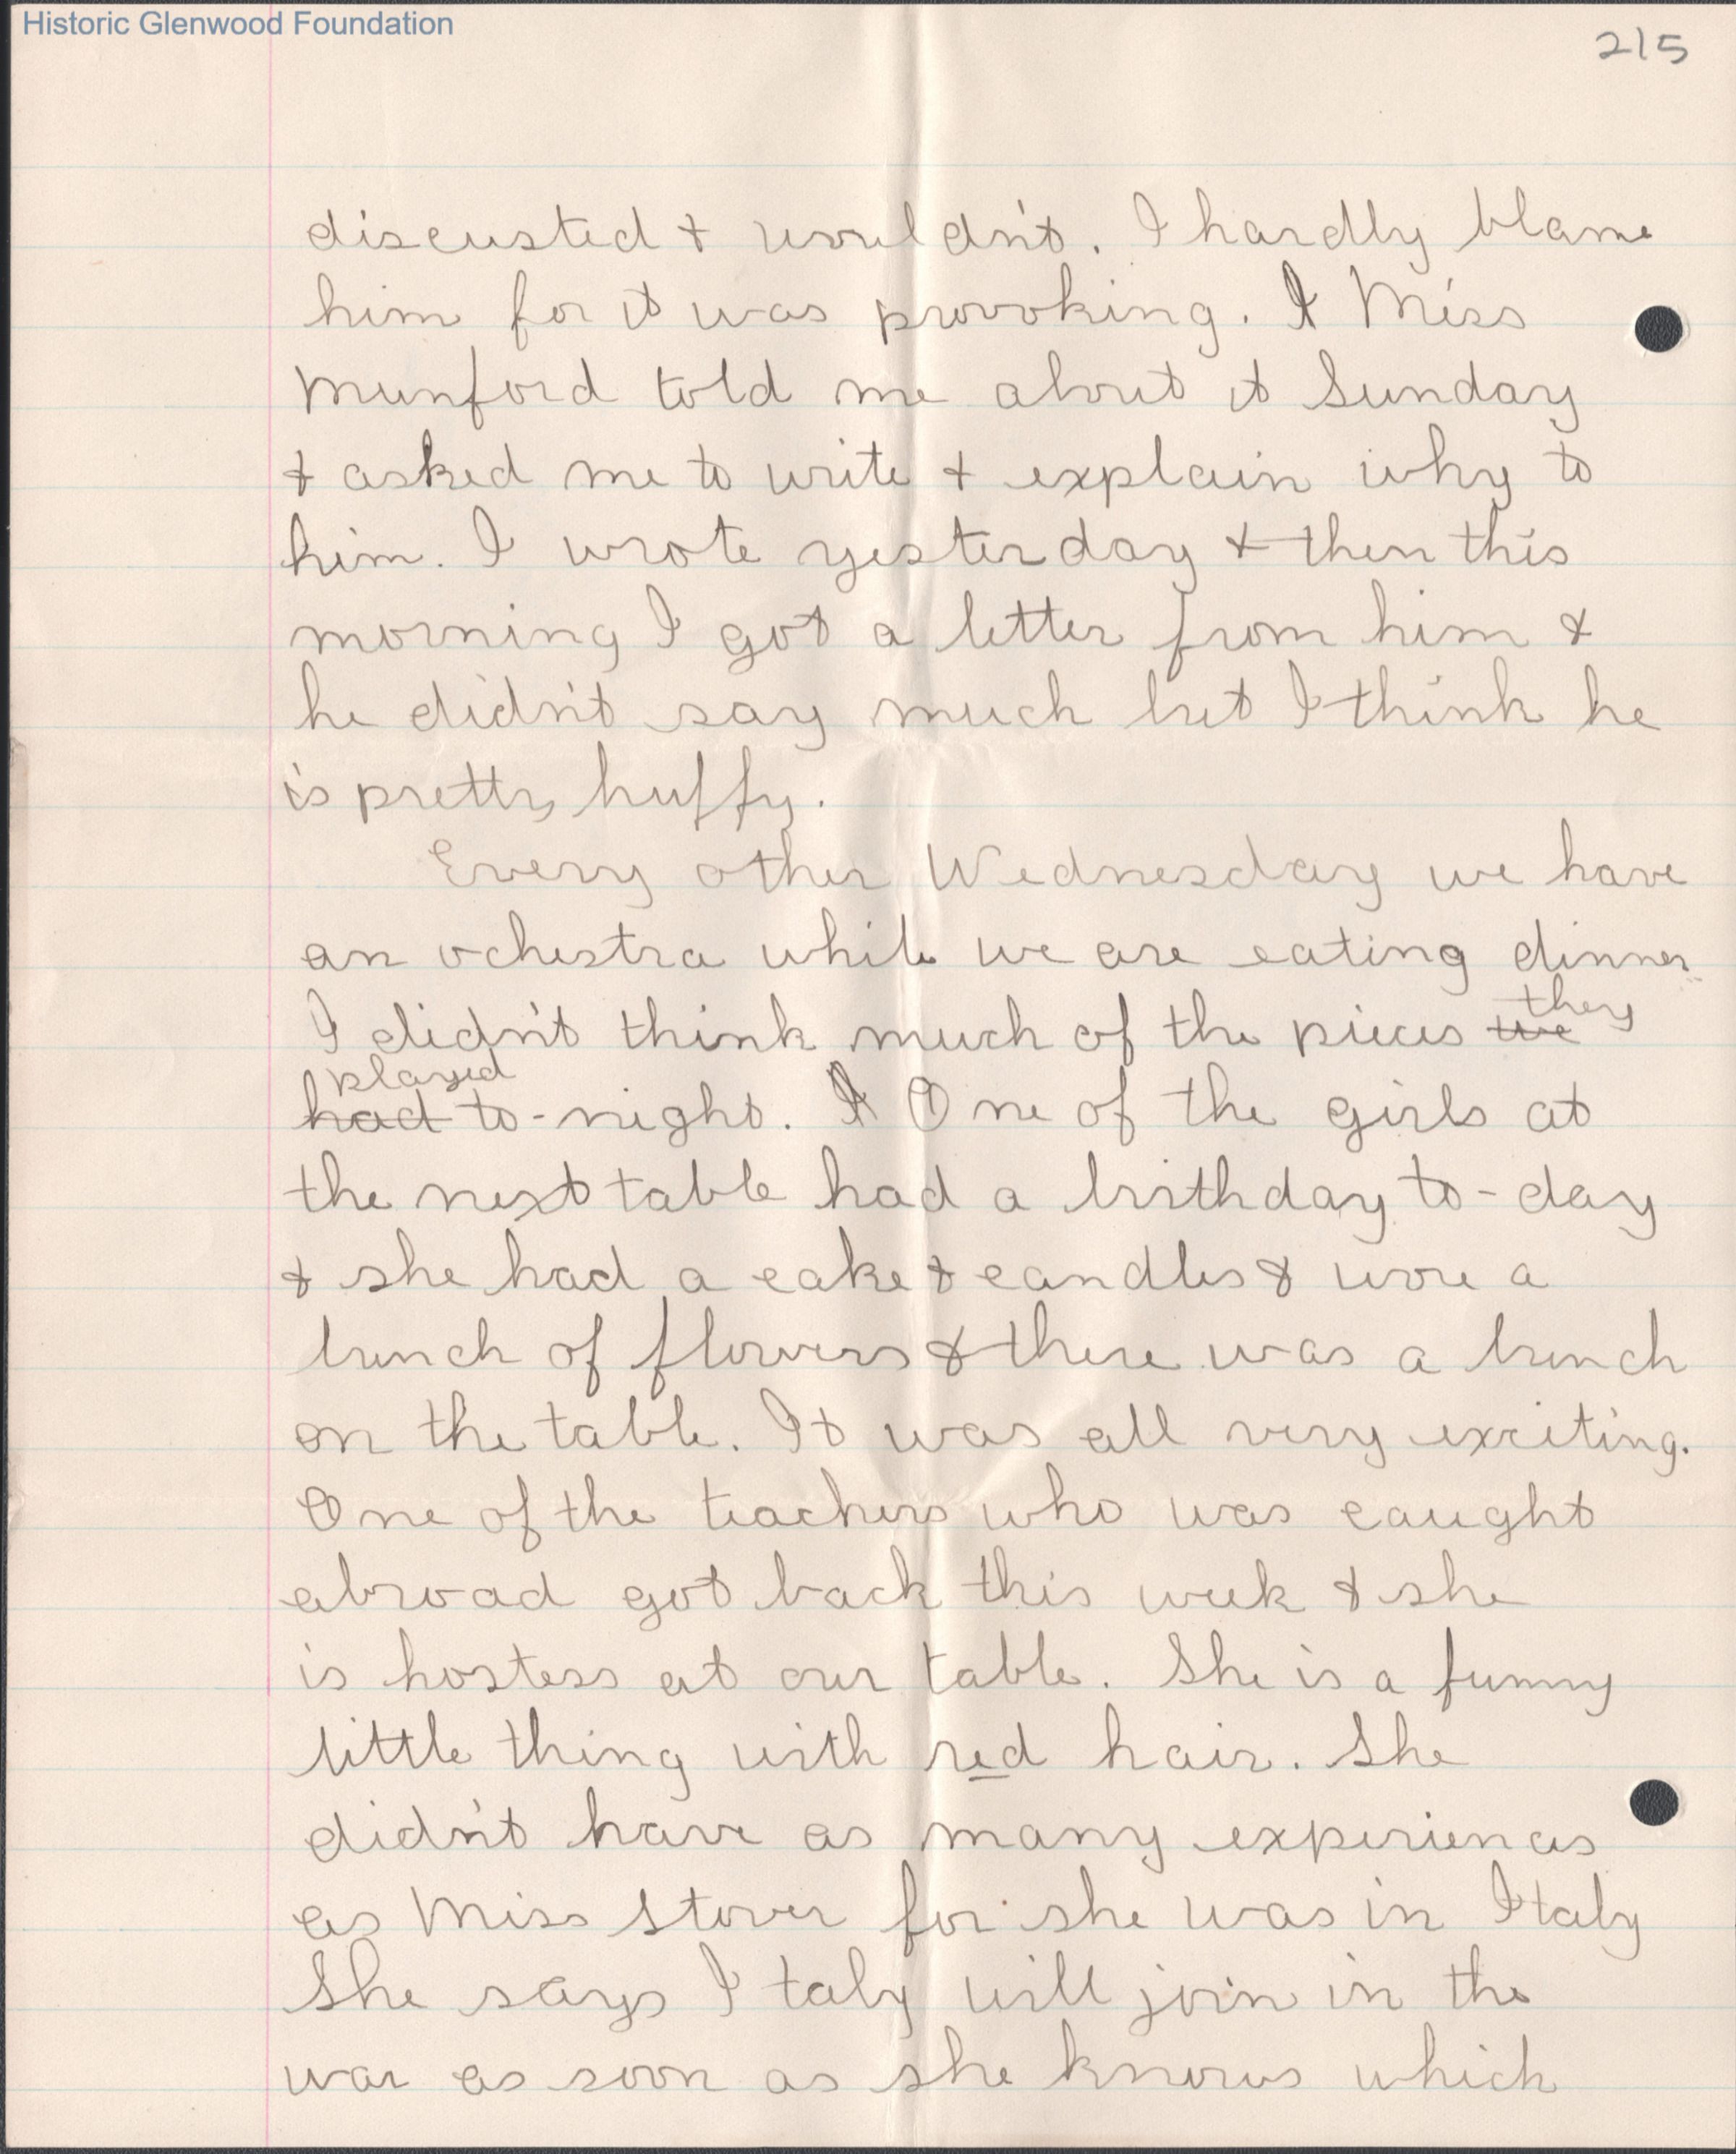 Historic Glenwood Foundation
215
discusted & wouldn't. I hardly blame
him for it was provoking. I Miss
Munford told me about it Sunday
& asked me to write & explain why to
him. I wrote yesterday & then this
morning I got a letter from him &
he didn't say much but I think he
is pretty huffy.
Every other Wednesday we have
an ochestra while we are eating dinner
I didn't think much of the pieces we they
had played to-night. I One of the girls at
the next table had a birthday to-day
& she had a cake & candles & wore a
bunch of flowers & there was a bunch
on the table. It was all very exciting.
One of the teachers who was caught
abroad got back this week & she
is hostess at our table. She is a funny
little thing with red hair. She
didn't have as many experiences
as Miss Stover for she was in Italy
She says Italy will join in the
war as soon as she knows which